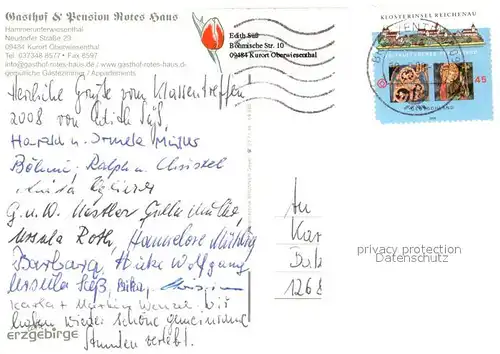 Gasthof & Pension Rotes Haus
Hammerunterwiesenthal
Neudorfer Straße 23
09484 Kurort Oberwiesenthal
Tel. 037348 8577 • Fax 8597
info@gasthof-rotes-haus.de • www.gasthof-rotes-haus.d
gemütliche Gästezimmer / Appartements
Edith Süß
Böhmische Str. 10
09484 Kurort Oberwiesenthal
KLOSTERINSEL REICHENAU
45
DEUTSCHLAND
Herzliche Grüße vom Klassentreffen
2008 von Edith Süß,
Harald u. Irmela
Böhme, Ralph u. Christel
G. u. W. Nestler
Ursula Roth, Hannelore
Barbara, Wolfgang
Ursula Heß,
Karla + Wenzel. Wir
haben wieder schöne gemeinsame
Stunden verlebt.
erzgebirge
An
Kar
1268
privacy protection
Datenschutz